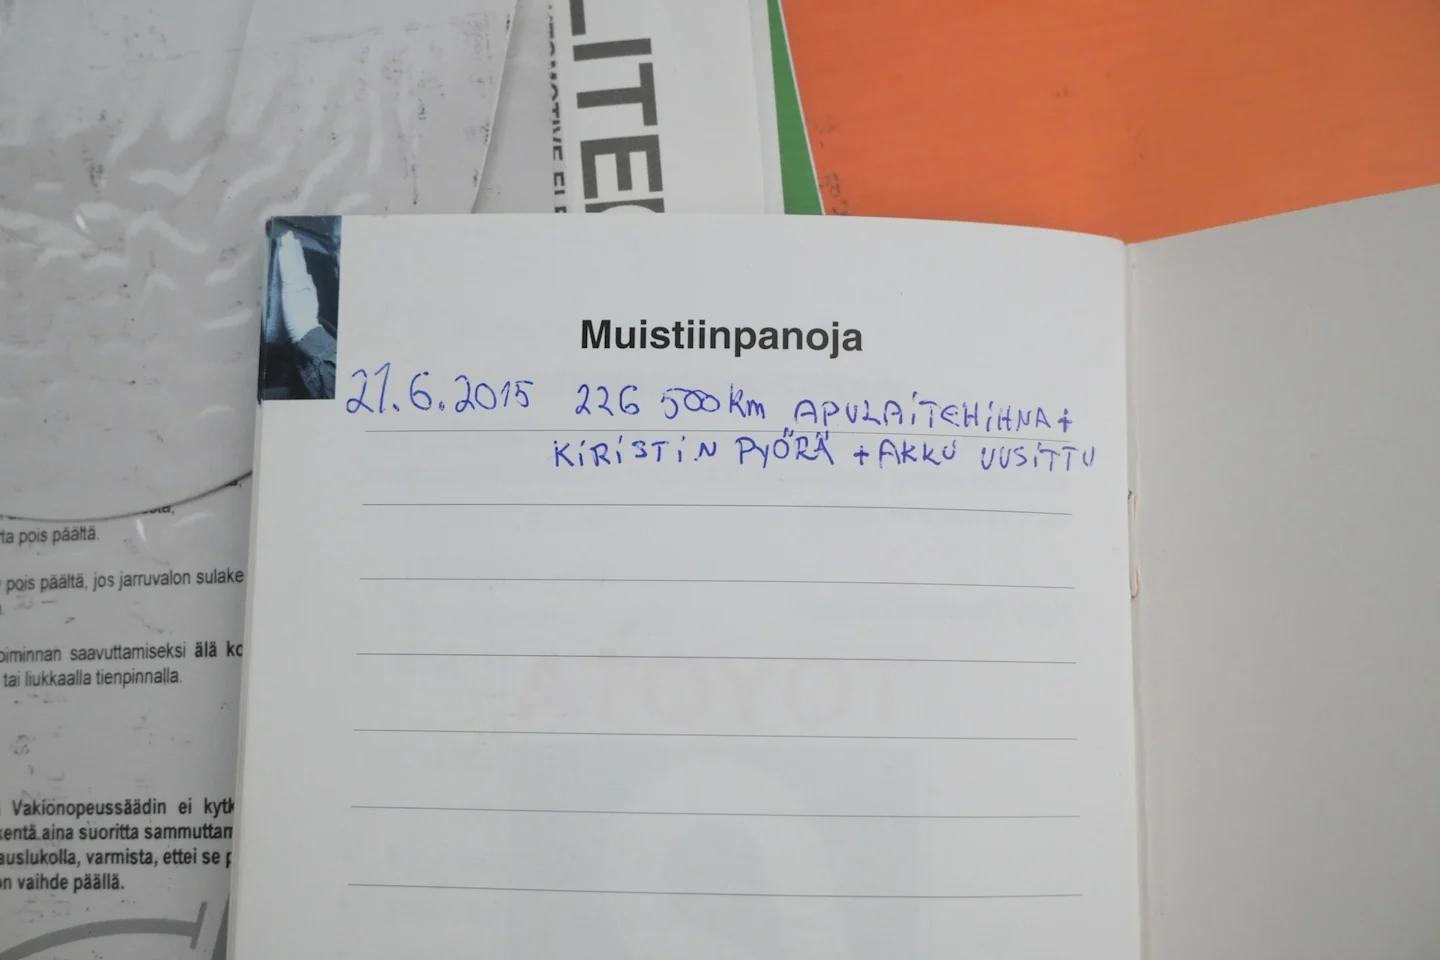 LITE
Muistiinpanoja
21.6.2015 226 500 km APULAITEHIHNA +
KIRISTIN PYÖRÄ + AKKU UUSITTU
TOYOTA
ta pois päältä.
pois päältä, jos jarruvalon sulake
oiminnan saavuttamiseksi älä ko
tai liukkaalla tienpinnalla.
Vakionopeussäädin ei kytk
kentä aina suoritta sammuttam
auslukolla, varmista, ettei se p
on vaihde päällä.